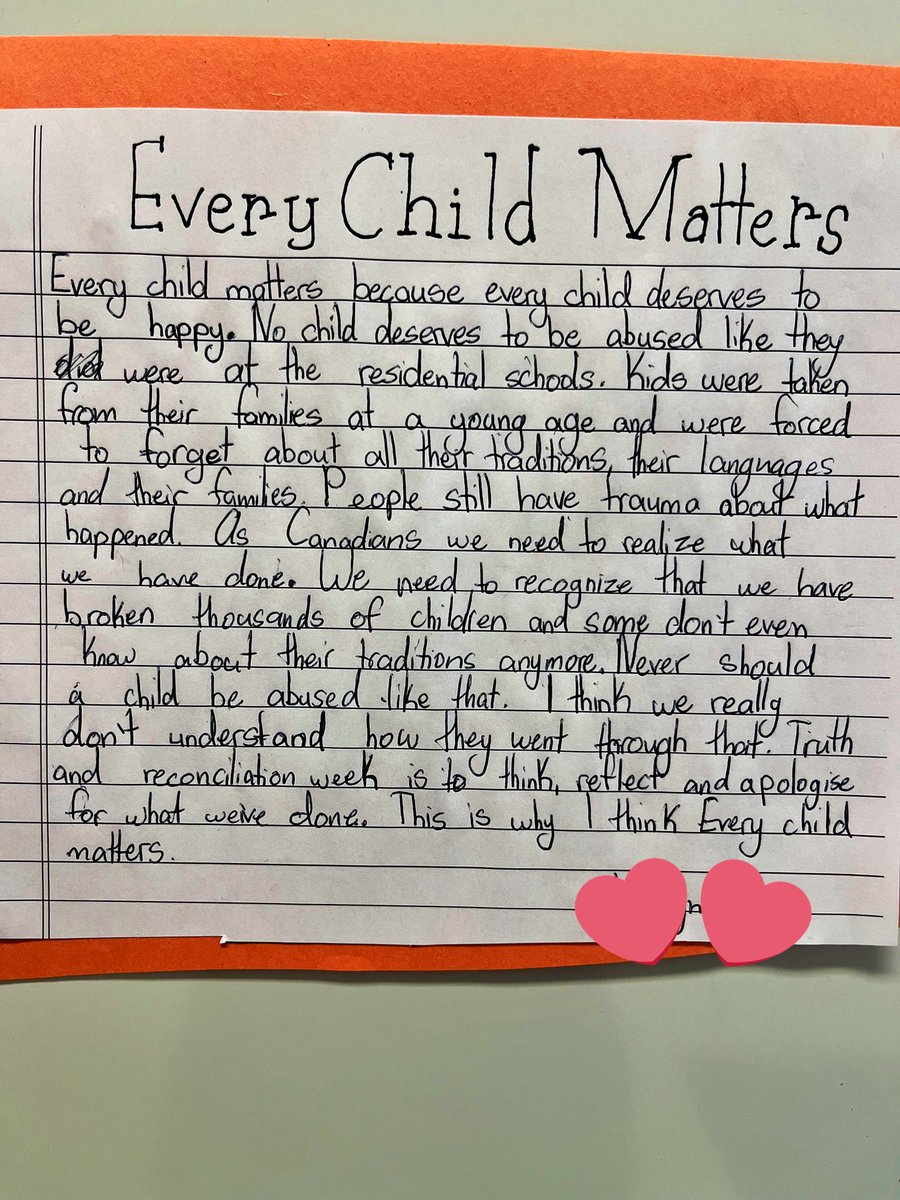 Every Child Matters
Every child matters because every child deserves to
be happy. No child deserves to be abused like they
did were at the residential schools. Kids were taken
from their families at a young age and were forced
to forget about all their traditions, their languages
and their families. People still have trauma about what
happened. As Canadians we need to realize what
we have done. We need to recognize that we have
broken thousands of children and some don't even
know about their traditions anymore. Never should
a child be abused like that. I think we really
don't understand how they went through that. Truth
and reconciliation week is to think, reflect and apologise
for what we've done. This is why I think Every child
matters.